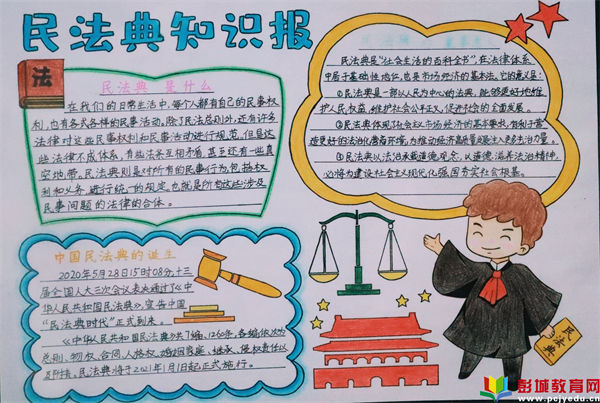 民法典知识报
法
民法典 是什么
在我们的日常生活中,每个人都有自己的民事权
利,也有各式各样的民事活动。除了民法总则外,还有许多
法律对这些民事权利和民事活动进行规范,但是这
些法律不成体系,有些法条互相矛盾,甚至还有一些真
空地带。民法典则是对所有的民事行为,包括权
利和义务,进行统一的规定,也就是所有这些涉及
民事问题的法律的合体。
民法典是“社会生活的百科全书”,在法律体系
中居于基础性地位,也是市场经济的基本法。它的意义是:
①民法典是一部以人民为中心的法典,能够更好地维
护人民权益,维护社会公平正义,促进社会的全面发展。
②民法典体现了社会主义市场经济的基本要求,有利于营
造更好的法治化营商环境,为推动经济高质量发展注入更多法治力量。
③民法典以法治承载道德观念,以道德滋养法治精神,
必将为建设社会主义现代化强国夯实社会根基。
中国民法典的诞生
2020年5月28日15时08分,十三
届全国人大三次会议表决通过了《中
华人民共和国民法典》,宣告中国
“民法典时代”正式到来。
《中华人民共和国民法典》共7编、1260条,各编依次为
总则、物权、合同、人格权、婚姻家庭、继承、侵权责任以
及附则。民法典将于2021年1月1日起正式施行。
民法典
彭城教育网
www.pcjyedu.cn